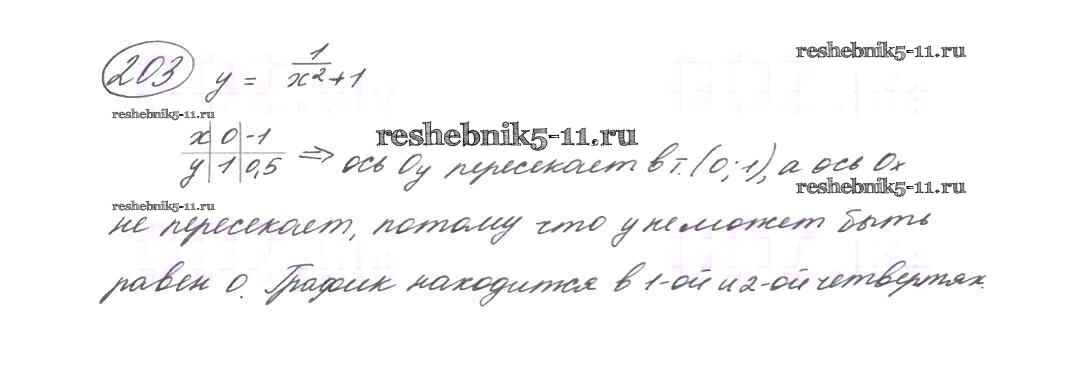 reshebnik5-11.ru
203 y = 1/x²+1
reshebnik5-11.ru
x 0 -1
reshebnik5-11.ru
y 1 0,5 ⇒ ось Oy пересекает в т. (0;1), а ось Ox
reshebnik5-11.ru
reshebnik5-11.ru
не пересекает, потому что y не может быть
равен 0. График находится в 1-ой и 2-ой четвертях.